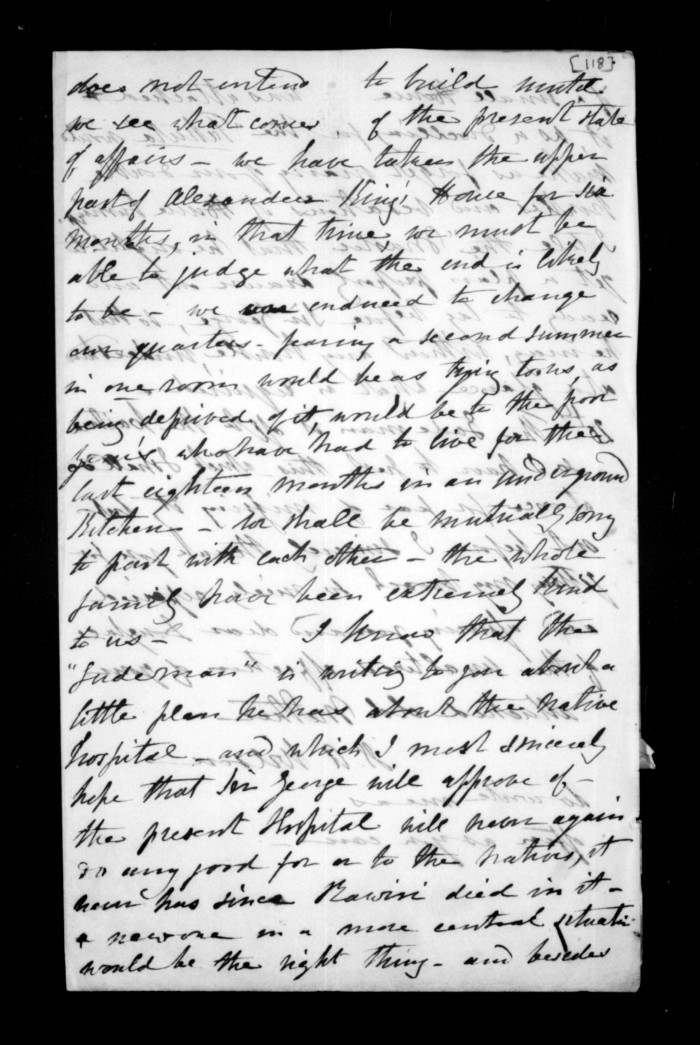 [118]
does not intend to build until
we see what comes of the present state
of affairs - we have taken the upper
part of Alexander King's House for six
months, in that time, we must be
able to judge what the end is likely
to be - we were enduced to change
our quarters - fearing a second summer
in one room would be as trying to us, as
being deprived of it, would be to the poor
who have had to live for the
last eighteen months in an underground
Kitchen - We shall be mutually sorry
to part with each other - the whole
family have been extremely kind
to us - I know that the
"Gudeman" is writing to you about a
little plan he has about the Native
hospital - and which I most sincerely
hope that Sir George will approve of -
the present Hospital will never again
do any good for or to the natives, it
never has since Rawiri died in it -
a new one in a more central situatio
would be the right thing - and besides